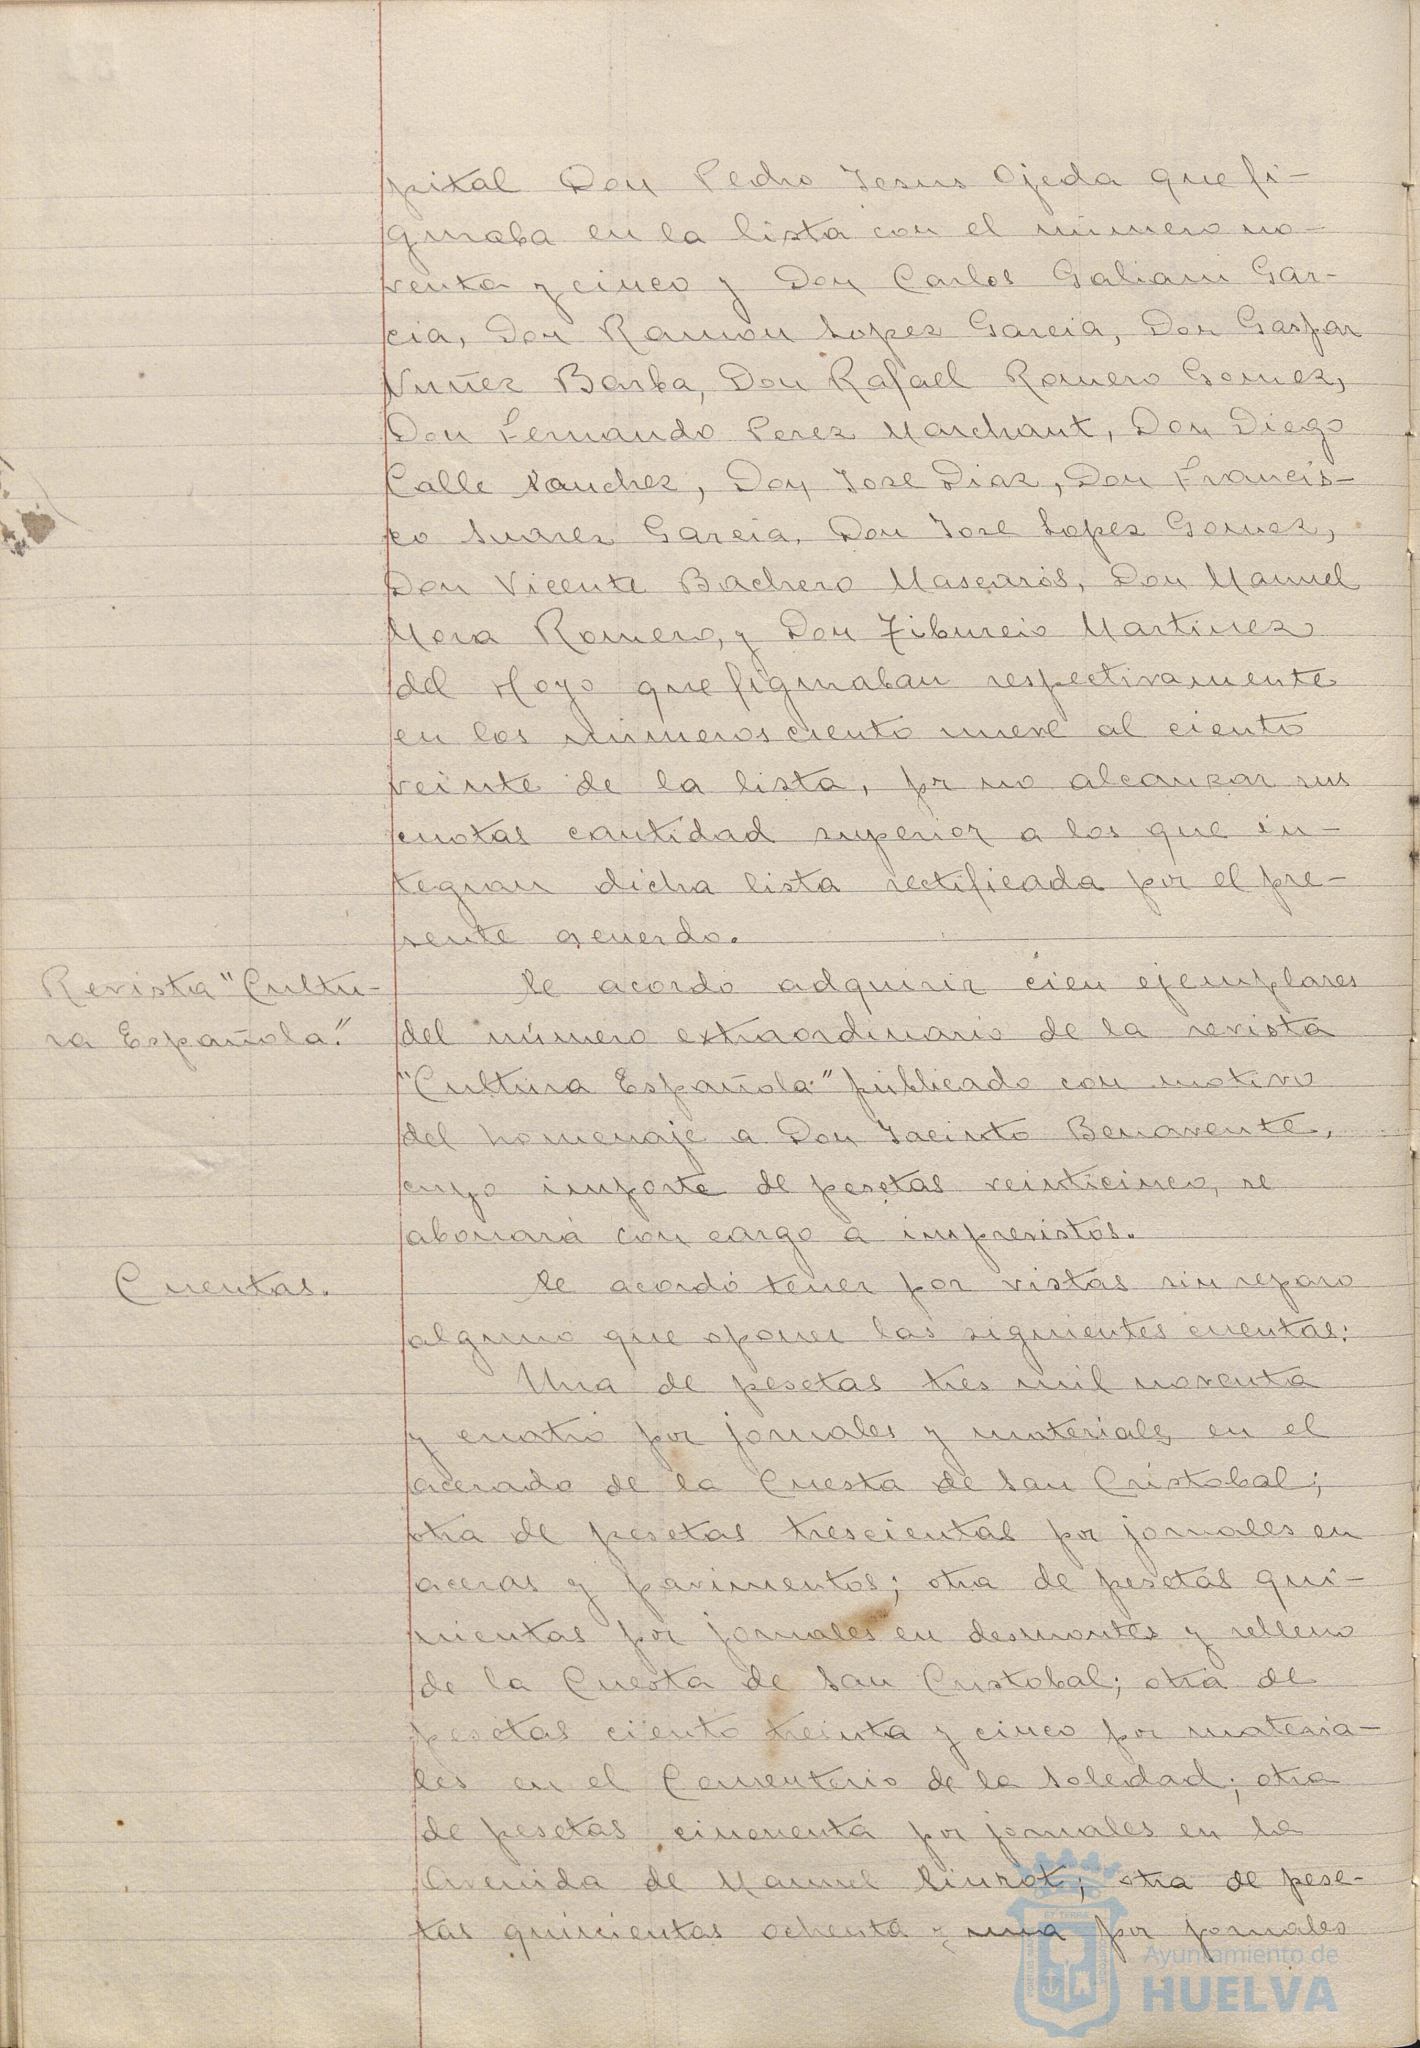 pital Don Pedro Jesus Ojeda que fi-
guraba en la lista con el número no-
venta y cinco y Don Carlos Galiani Gar-
cia, Don Ramon Lopez Garcia, Don Gaspar
Nuñez Barba, Don Rafael Romero Gomez,
Don Fernando Perez Marchant, Don Diego
Calle Sanchez, Don Jose Diaz, Don Francis-
co Suarez Garcia, Don Jose Lopez Gomez,
Don Vicente Bachero Mascarós, Don Manuel
Mora Romero, y Don Tiburcio Martinez
del Hoyo que figuraban respectivamente
en los números ciento nueve al ciento
veinte de la lista, pr no alcanzar sus
cuotas cantidad superior a los que in-
tegran dicha lista rectificada por el pre-
sente acuerdo.
Revista "Cultu-
ra Española."
Se acordó adquirir cien ejemplares
del número extraordinario de la revista
"Cultura Española" publicado con motivo
del homenaje a Don Jacinto Benavente,
cuyo importe de pesetas veinticinco, se
abonará con cargo a imprevistos.
Cuentas.
Se acordó tener por vistas sin reparo
alguno que oponer las siguientes cuentas:
Una de pesetas tres mil noventa
y cuatro por jornales y materiales en el
acerado de la Cuesta de San Cristobal;
otra de pesetas trescientas por jornales en
aceras y pavimentos; otra de pesetas qui-
nientas por jornales en desmontes y relleno
de la Cuesta de San Cristobal; otra de
pesetas ciento treinta y cinco por materia-
les en el Cementerio de la Soledad; otra
de pesetas cincuenta por jornales en la
Avenida de Manuel Siurot; otra de pese-
tas quinientas ochenta y una por jornales
Ayuntamiento de
HUELVA